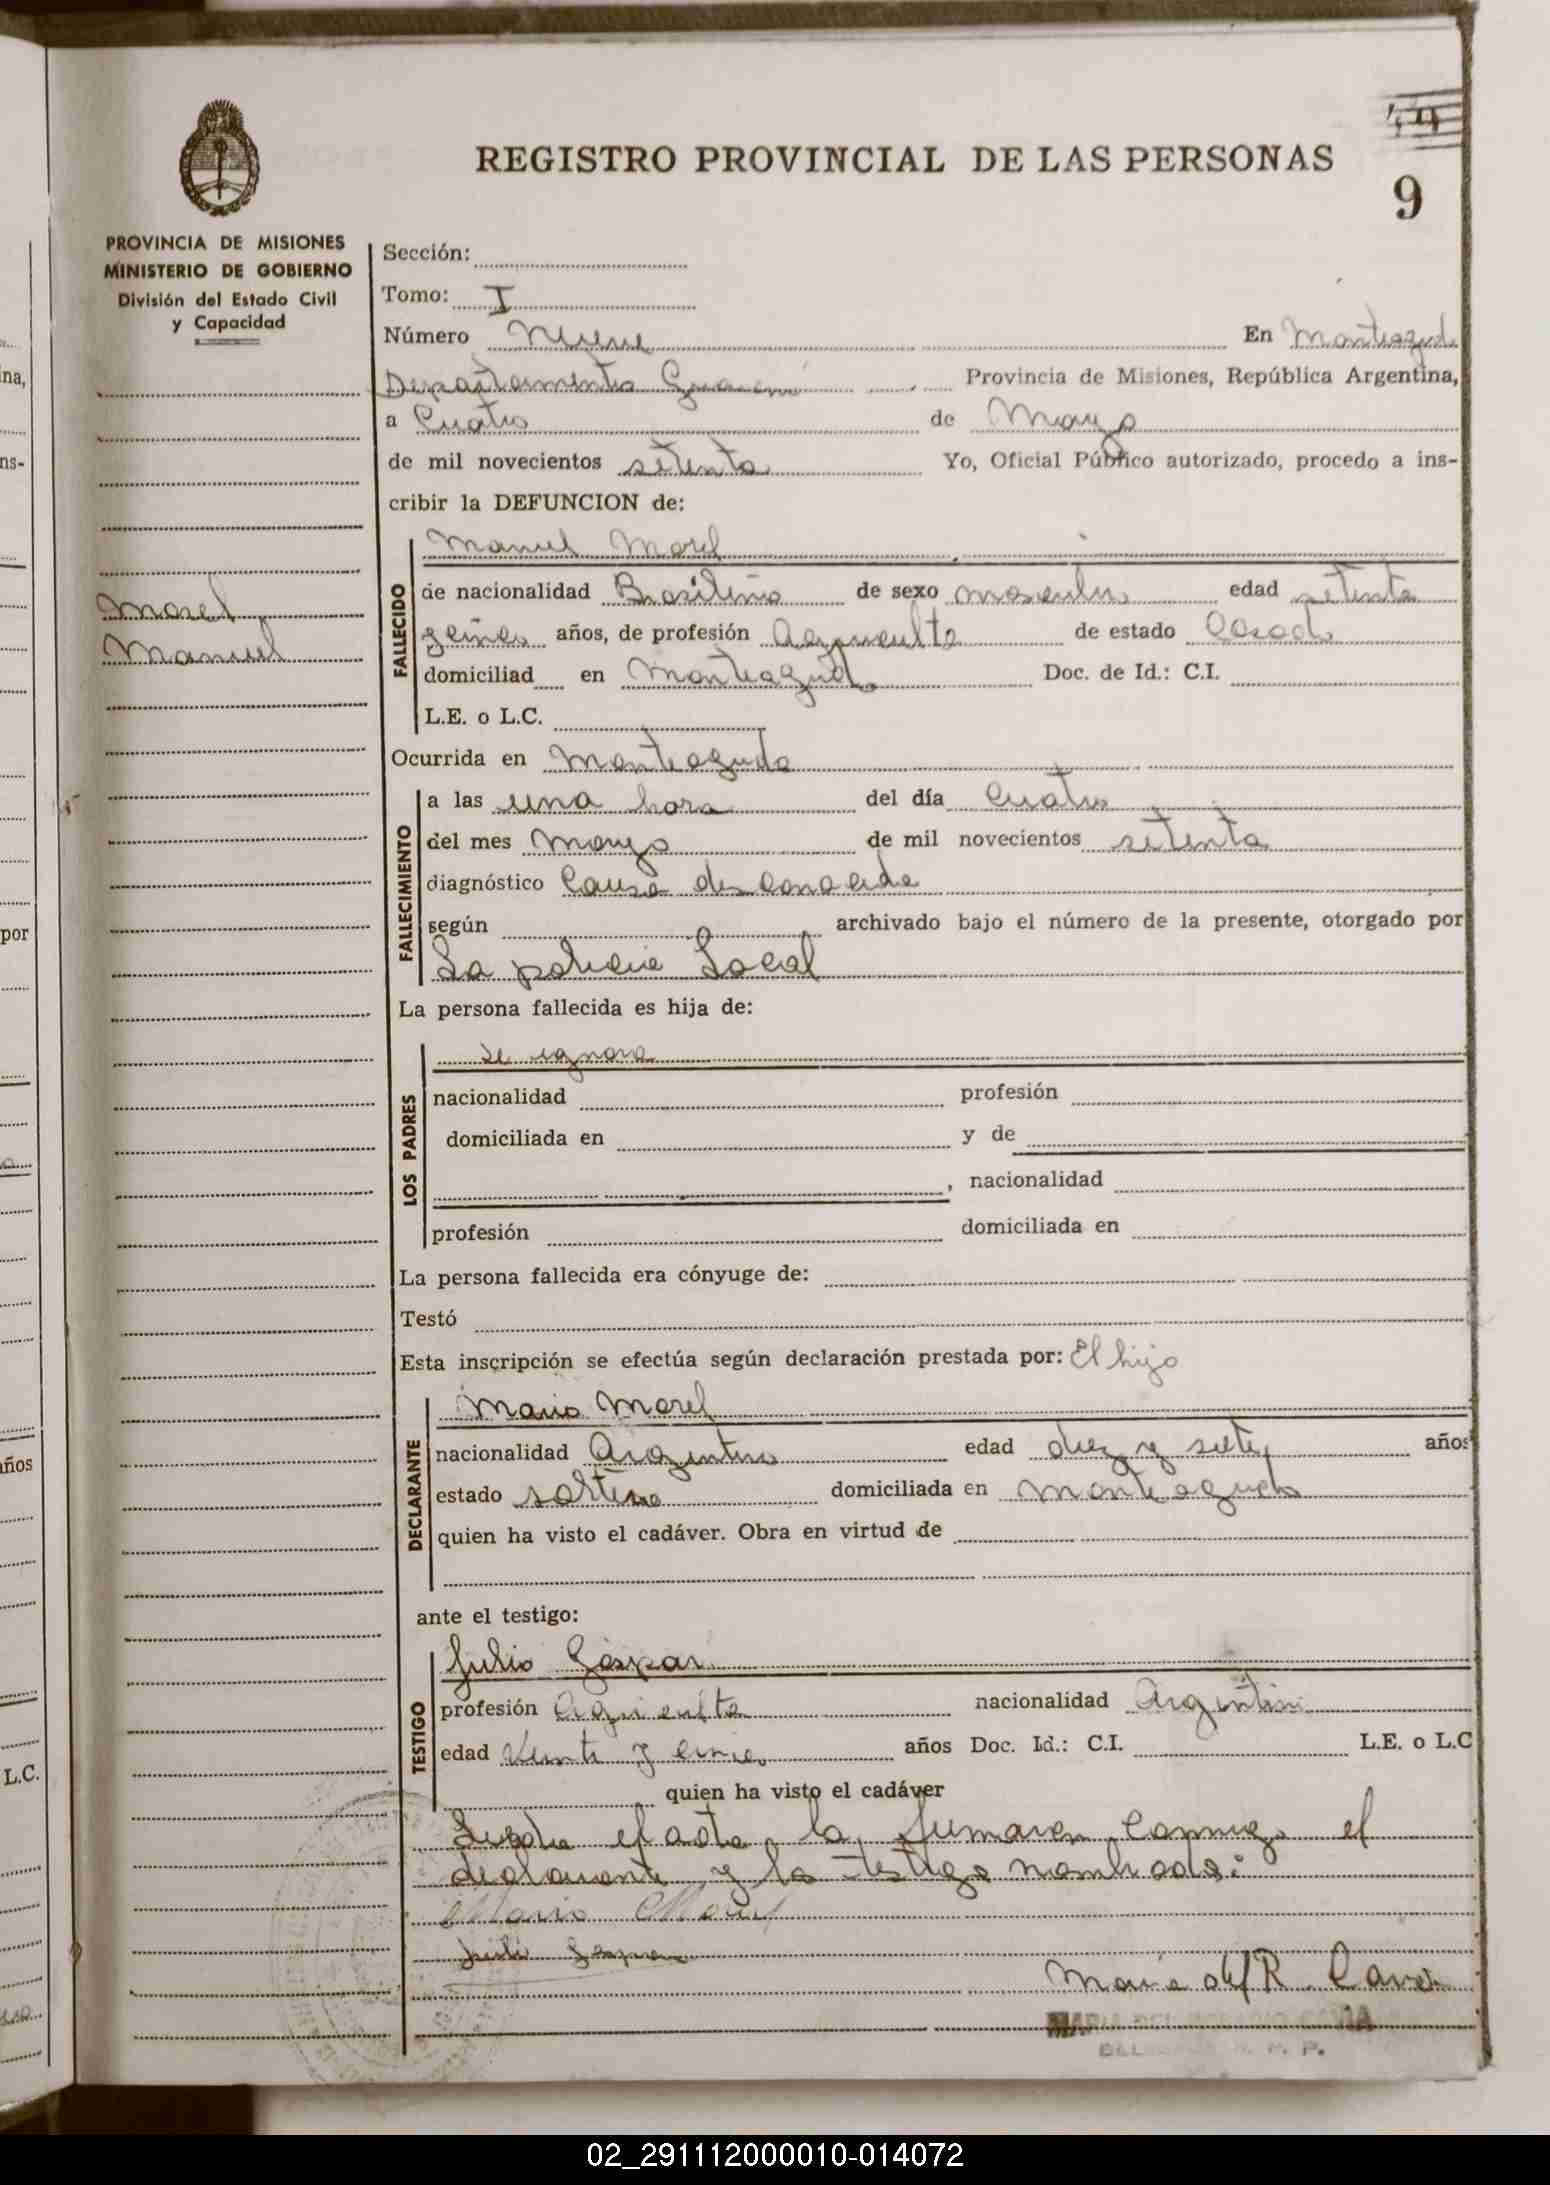 49
REGISTRO PROVINCIAL DE LAS PERSONAS
9
PROVINCIA DE MISIONES
MINISTERIO DE GOBIERNO
División del Estado Civil
y Capacidad
Morel
Manuel
Sección:
Tomo: I
Número Nueve En Monteagudo
Departamento Guaraní Provincia de Misiones, República Argentina,
a Cuatro de Marzo
de mil novecientos setenta Yo, Oficial Público autorizado, procedo a ins-
cribir la DEFUNCION de:
Manuel Morel
FALLECIDO
de nacionalidad Brasileño de sexo masculino edad setenta
y cinco años, de profesión Agricultor de estado Casado
domiciliad en Monteagudo Doc. de Id.: C.I.
L.E. o L.C.
Ocurrida en Monteagudo
FALLECIMIENTO
a las una hora del día Cuatro
del mes Marzo de mil novecientos setenta
diagnóstico Causa desconocida
según archivado bajo el número de la presente, otorgado por
La policia Local
La persona fallecida es hija de:
LOS PADRES
se ignora
nacionalidad profesión
domiciliada en y de
, nacionalidad
profesión domiciliada en
La persona fallecida era cónyuge de:
Testó
Esta inscripción se efectúa según declaración prestada por: El hijo
DECLARANTE
Mario Morel
nacionalidad Argentino edad diez y siete años
estado soltero domiciliada en Monteagudo
quien ha visto el cadáver. Obra en virtud de
ante el testigo:
TESTIGO
Julio Gaspar
profesión Agricultor nacionalidad Argentino
edad Veinte y cinco años Doc. Id.: C.I. L.E. o L.C
quien ha visto el cadáver
el acta, la firmaron conmigo el
declarante y la testigo nombrada:
Mario Morel
Julio Gaspar
Maria del R.
DEL R. P.
na,
ns-
por
años
L.C.
02_291112000010-014072